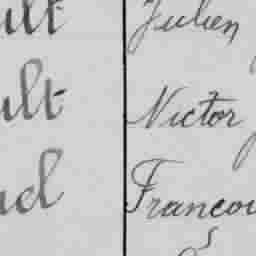 ult Julien
ult Victor
ud Francoi